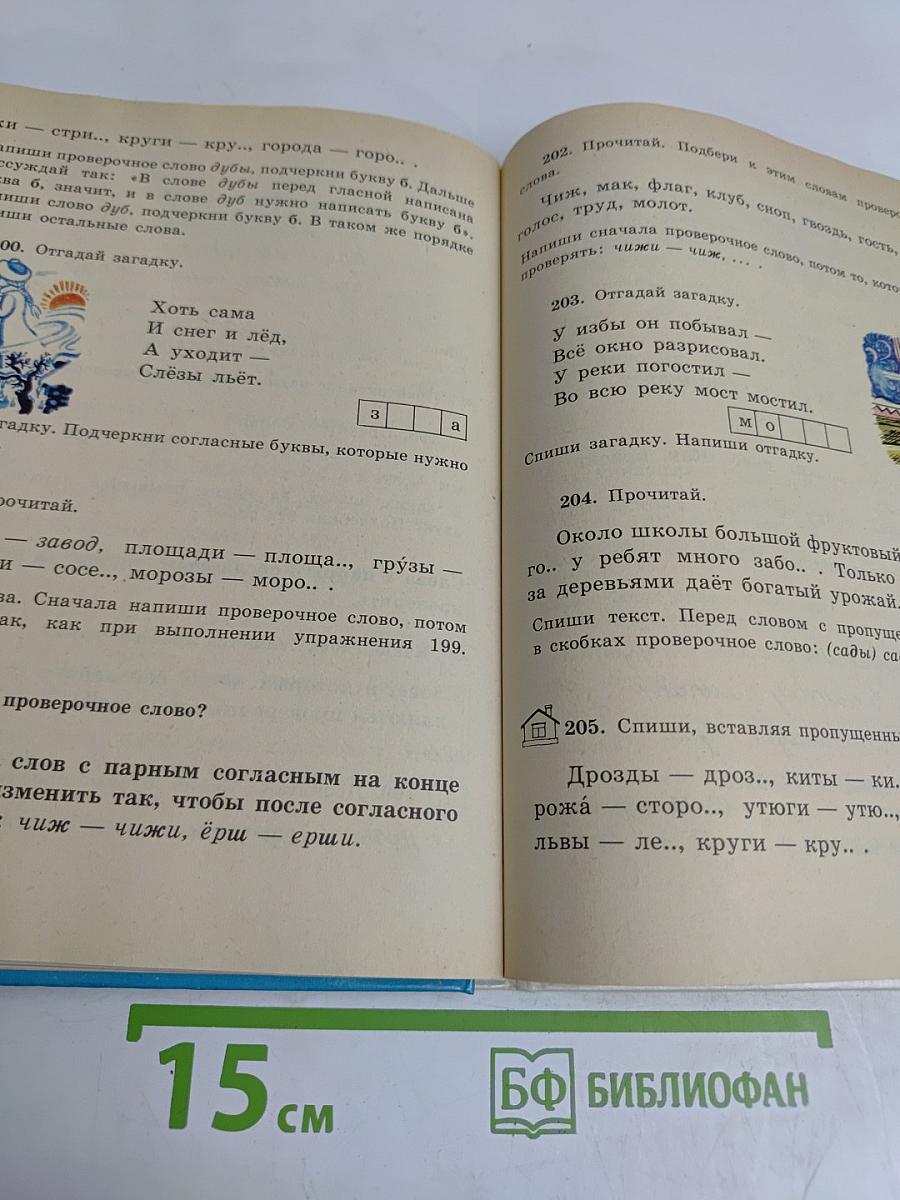 ки — стри.., круги — кру.., города — горо.. .
апиши проверочное слово дубы, подчеркни букву б. Дальше
ссуждай так: «В слове дубы перед гласной написана
ква б, значит, и в слове дуб нужно написать букву б».
пиши слово дуб, подчеркни букву б. В таком же порядке
иши остальные слова.
00. Отгадай загадку.
Хоть сама
И снег и лёд,
А уходит —
Слёзы льёт.
з а
гадку. Подчеркни согласные буквы, которые нужно
рочитай.
— завод, площади — площа.., гру́зы —
и — сосе.., морозы — моро.. .
ва. Сначала напиши проверочное слово, потом
ак, как при выполнении упражнения 199.
проверочное слово?
слов с парным согласным на конце
изменить так, чтобы после согласного
чиж — чижи, ёрш — ерши.
202. Прочитай. Подбери к этим словам провероч
слова.
Чиж, мак, флаг, клуб, сноп, гвоздь, гость,
голос, труд, молот.
Напиши сначала проверочное слово, потом то, кото
проверять: чижи — чиж, ... .
203. Отгадай загадку.
У избы он побывал —
Всё окно разрисовал.
У реки погостил —
Во всю реку мост мостил.
м о
Спиши загадку. Напиши отгадку.
204. Прочитай.
Около школы большой фруктовый
го.. у ребят много забо.. . Только
за деревьями даёт богатый урожай.
Спиши текст. Перед словом с пропуще
в скобках проверочное слово: (сады) са
205. Спиши, вставляя пропущенны
Дрозды — дроз.., киты — ки.
рожа́ — сторо.., утюги — утю..,
львы — ле.., круги — кру.. .
15 см
БФ БИБЛИОФАН